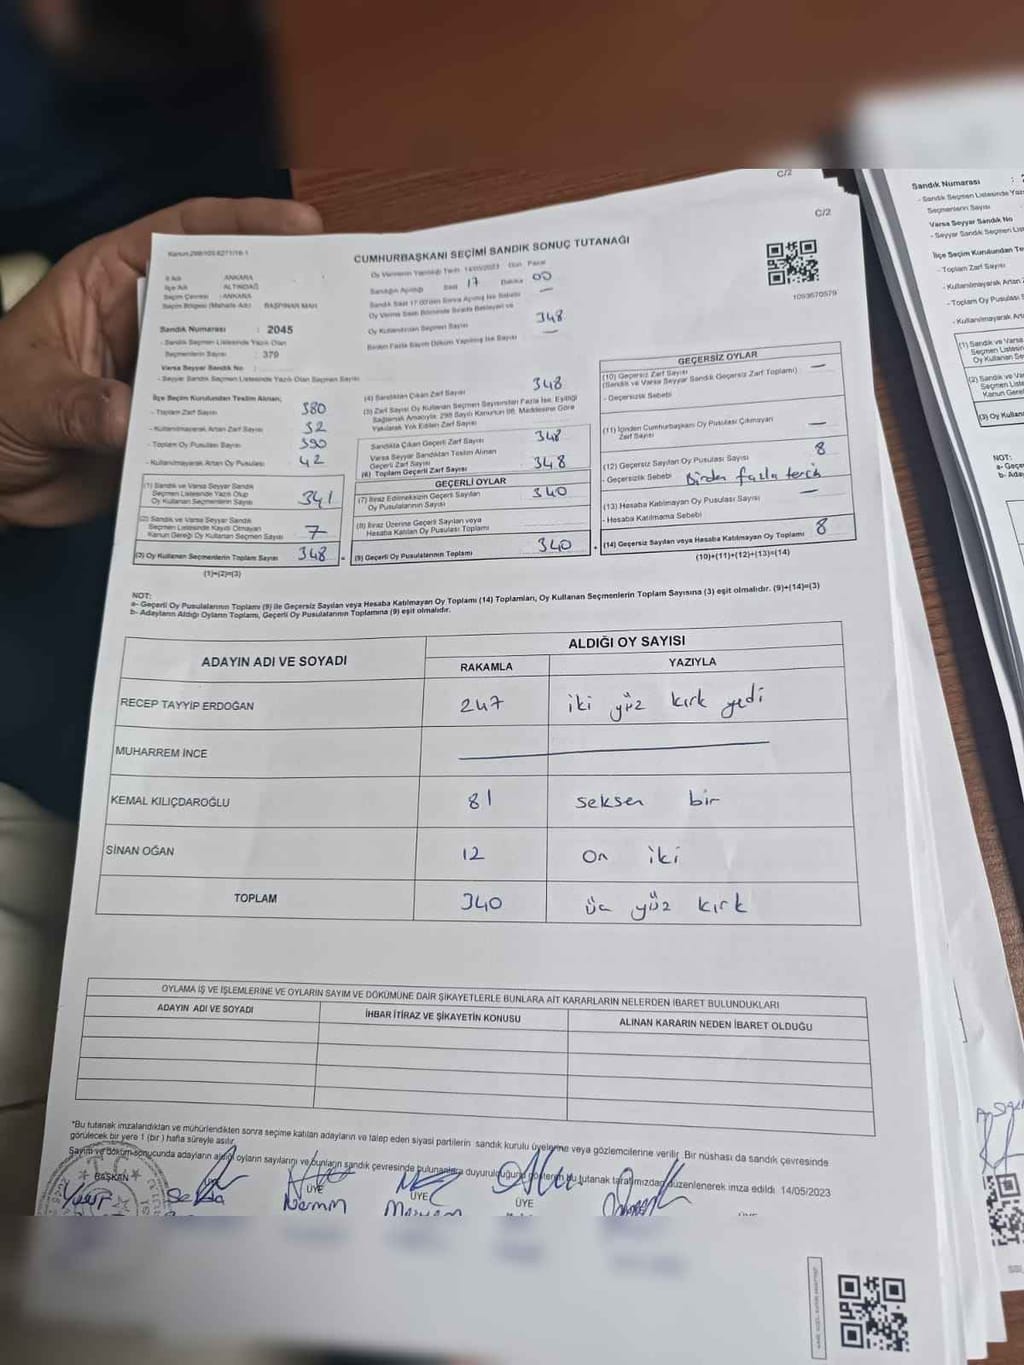 C/2
C/2
Kanun:298/105,6271/16-1
CUMHURBAŞKANI SEÇİMİ SANDIK SONUÇ TUTANAĞI
1093670579
İl Adı : ANKARA
İlçe Adı : ALTINDAĞ
Seçim Çevresi : ANKARA
Seçim Bölgesi (Mahalle Adı) : BAŞPINAR MAH.
Sandık Numarası : 2045
- Sandık Seçmen Listesinde Yazılı Olan
Seçmenlerin Sayısı : 379
Varsa Seyyar Sandık No :
- Seyyar Sandık Seçmen Listesinde Yazılı Olan Seçmen Sayısı
Oy Vermenin Yapıldığı Tarih 14/05/2023 Gün Pazar
Sandığın Açıldığı Saat 17 Dakika 00
Sandık Saat 17:00'den Sonra Açılmış İse Sebebi —
Oy Verme Saati Bitiminde Sırada Bekleyen ve
Oy Kullandırılan Seçmen Sayısı 348
Birden Fazla Sayım Döküm Yapılmış İse Sayısı —
İlçe Seçim Kurulundan Teslim Alınan;
- Toplam Zarf Sayısı 380
- Kullanılmayarak Artan Zarf Sayısı 32
- Toplam Oy Pusulası Sayısı 390
- Kullanılmayarak Artan Oy Pusulası 42
(1) Sandık ve Varsa Seyyar Sandık
Seçmen Listesinde Yazılı Olup
Oy Kullanan Seçmenlerin Sayısı 341
(2) Sandık ve Varsa Seyyar Sandık
Seçmen Listesinde Kayıtlı Olmayan
Kanun Gereği Oy Kullanan Seçmen Sayısı 7
(3) Oy Kullanan Seçmenlerin Toplam Sayısı 348
(1)+(2)=(3)
(4) Sandıktan Çıkan Zarf Sayısı 348
(5) Zarf Sayısı Oy Kullanan Seçmen Sayısından Fazla İse, Eşitliği
Sağlamak Amacıyla; 298 Sayılı Kanunun 98. Maddesine Göre
Yakılarak Yok Edilen Zarf Sayısı
Sandıkta Çıkan Geçerli Zarf Sayısı 348
Varsa Seyyar Sandıktan Teslim Alınan
Geçerli Zarf Sayısı
(6) Toplam Geçerli Zarf Sayısı 348
GEÇERLİ OYLAR
(7) İtiraz Edilmeksizin Geçerli Sayılan
Oy Pusulasının Sayısı 340
(8) İtiraz Üzerine Geçerli Sayılan veya
Hesaba Katılan Oy Pusulası Toplamı
(9) Geçerli Oy Pusulalarının Toplamı 340
GEÇERSİZ OYLAR
(10) Geçersiz Zarf Sayısı —
(Sandık ve Varsa Seyyar Sandık Geçersiz Zarf Toplamı)
- Geçersizlik Sebebi
(11) İçinden Cumhurbaşkanı Oy Pusulası Çıkmayan
Zarf Sayısı —
(12) Geçersiz Sayılan Oy Pusulası Sayısı 8
- Geçersizlik Sebebi Birden fazla tercih
(13) Hesaba Katılmayan Oy Pusulası Sayısı —
- Hesaba Katılmama Sebebi
(14) Geçersiz Sayılan veya Hesaba Katılmayan Oy Toplamı 8
(10)+(11)+(12)+(13)=(14)
NOT:
a- Geçerli Oy Pusulalarının Toplamı (9) ile Geçersiz Sayılan veya Hesaba Katılmayan Oy Toplamı (14) Toplamları, Oy Kullanan Seçmenlerin Toplam Sayısına (3) eşit olmalıdır. (9)+(14)=(3)
b- Adayların Aldığı Oyların Toplamı, Geçerli Oy Pusulalarının Toplamına (9) eşit olmalıdır.
ADAYIN ADI VE SOYADI ALDIĞI OY SAYISI
RAKAMLA YAZIYLA
RECEP TAYYİP ERDOĞAN 247 iki yüz kırk yedi
MUHARREM İNCE
KEMAL KILIÇDAROĞLU 81 seksen bir
SİNAN OĞAN 12 on iki
TOPLAM 340 üç yüz kırk
OYLAMA İŞ VE İŞLEMLERİNE VE OYLARIN SAYIM VE DÖKÜMÜNE DAİR ŞİKAYETLERLE BUNLARA AİT KARARLARIN NELERDEN İBARET BULUNDUKLARI
ADAYIN ADI VE SOYADI İHBAR İTİRAZ VE ŞİKAYETİN KONUSU ALINAN KARARIN NEDEN İBARET OLDUĞU
*Bu tutanak imzalandıktan ve mühürlendikten sonra seçime katılan adayların ve talep eden siyasi partilerin sandık kurulu üyelerine veya gözlemcilerine verilir. Bir nüshası da sandık çevresinde
görülecek bir yere 1 (bir) hafta süreyle asılır.
Sayım ve döküm sonucunda adayların aldığı oyların sayılarını ve bunların sandık çevresinde bulunanlara duyurulduğunu gösterir bu tutanak tarafımızdan düzenlenerek imza edildi. 14/05/2023
BAŞKAN ÜYE ÜYE ÜYE
Sandık Numarası :
- Sandık Seçmen Listesinde
Seçmenlerin Sayısı
Varsa Seyyar Sandık No
- Seyyar Sandık Seçmen
İlçe Seçim Kurulundan
- Toplam Zarf Sayısı
- Kullanılmayarak Artan
- Toplam Oy Pusulası
- Kullanılmayarak
(1) Sandık ve Varsa
Seçmen
Oy Kullanan
(2) Sandık ve
Seçmen
Kanun
(3) Oy
NOT: